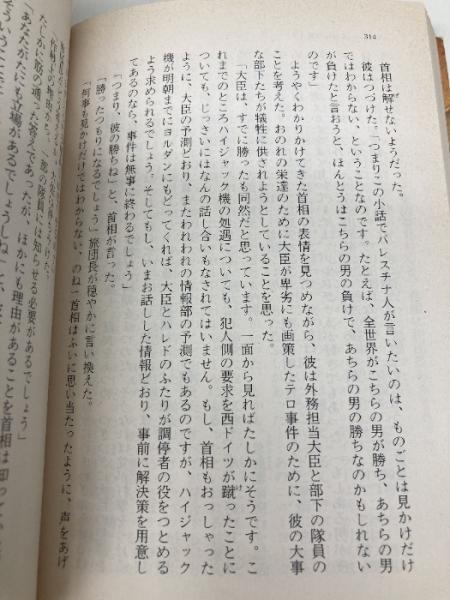 314
首相は解せないようだった。
彼はつづけた。「つまりこの小話でパレスチナ人が言いたいのは、ものごとは見かけだけ
ではわからない、ということなのです。たとえば、全世界がこちらの男が勝ち、あちらの男
が負けたと言おうと、ほんとうはこちらの男の負けで、あちらの男の勝ちなのかもしれない
のです」
ようやくわかりかけてきた首相の表情を見つめながら、彼は外務担当大臣と部下の隊員の
ことを考えた。おのれの栄達のために大臣が卑劣にも画策したテロ事件のために、彼の大事
な部下たちが犠牲に供されようとしていることを思った。
「大臣は、すでに勝ったも同然だと思っています。一面から見ればたしかにそうです。こ
れまでのところハイジャック機の処遇についても、犯人側の要求を西ドイツが蹴ったことに
ついても、じっさいにはなんの話し合いもなされてはいません。もし、首相もおっしゃった
ように、大臣の予測どおり、またわれわれの情報部の予測でもあるのですが、ハイジャック
機が明朝までにヨルダンにもどってくれば、大臣とハレドのふたりが調停者の役をつとめる
よう求められるでしょう。そしてもし、いまお話しした情報どおり、事前に解決策を用意し
てあるのなら、事件は無事に終わるでしょう」
「つまり、彼の勝ちね」と、首相が言った。
「勝ったつもりになるでしょう」旅団長が穏やかに言い換えた。
「何事も見かけだけではわからない、のね」首相はふいに思い当たったように、声をあげ
「作戦上の理由から、
隊員には知らせる必要があるでしょう」
たしかに取の通った答えであったが、ほかにも理由があることを首相は知って
「あなたがたにも立場があるでしょうしね」